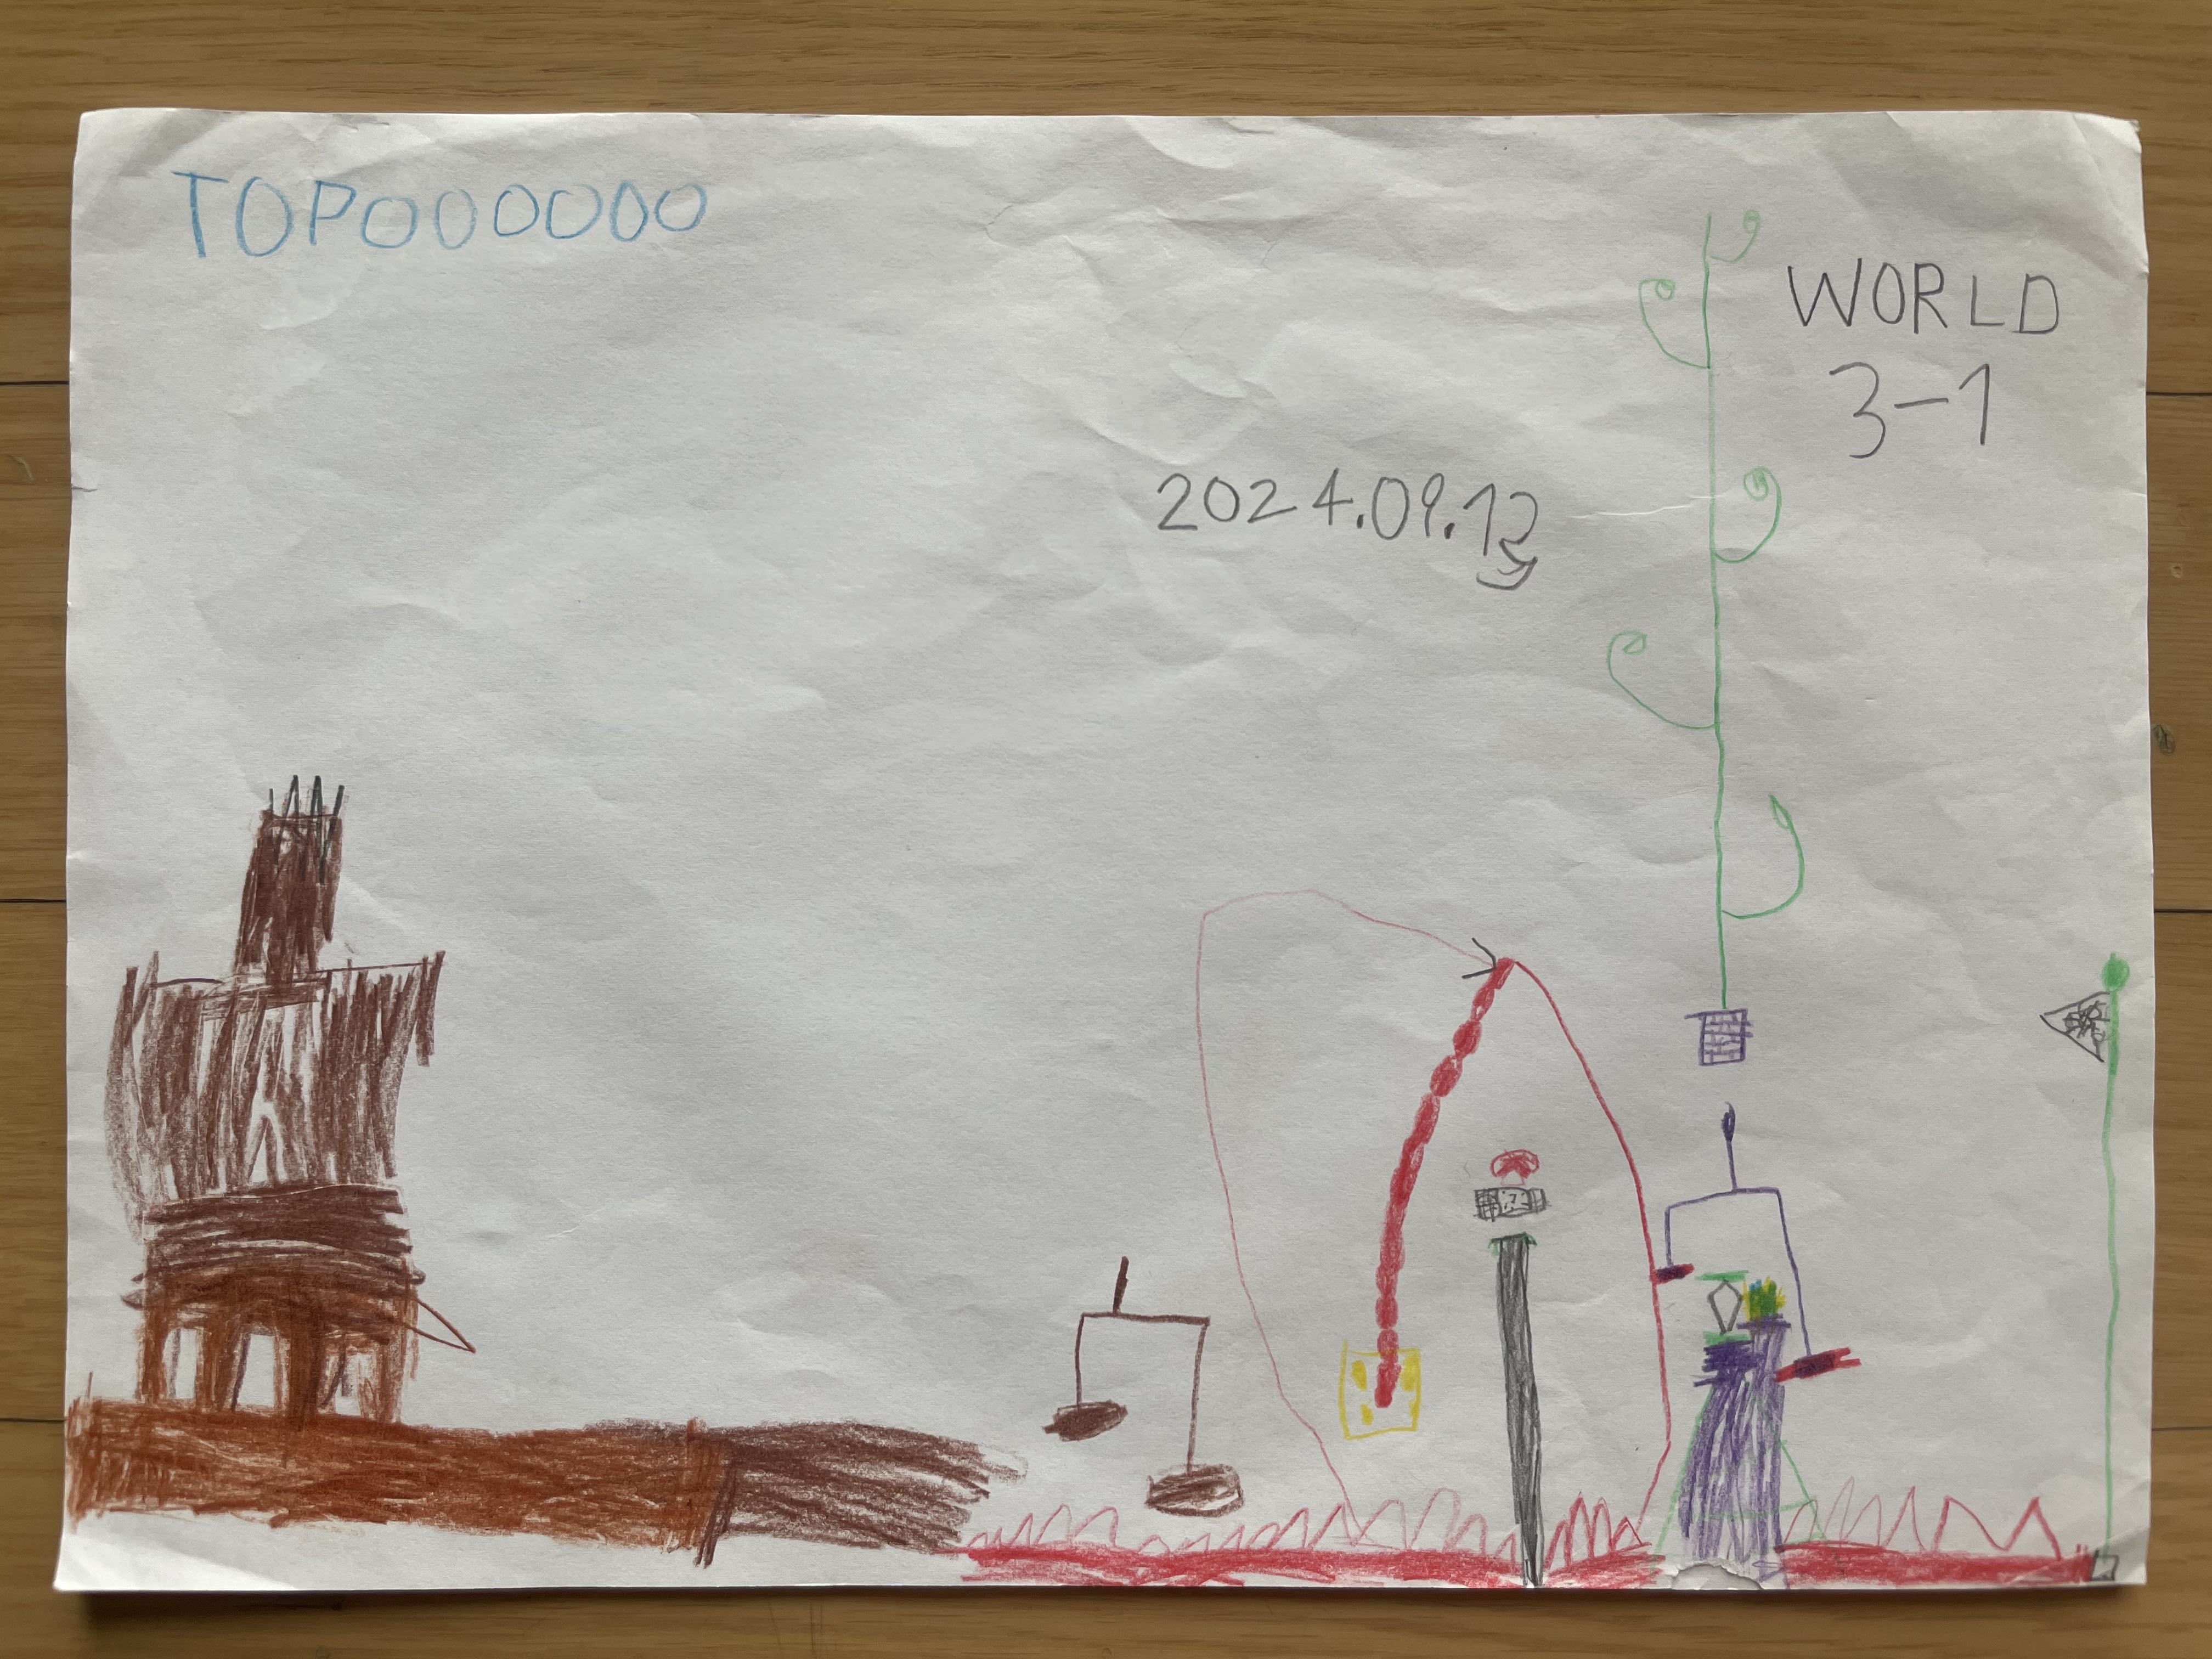 TOP000000
WORLD
3-1
2024.09.13